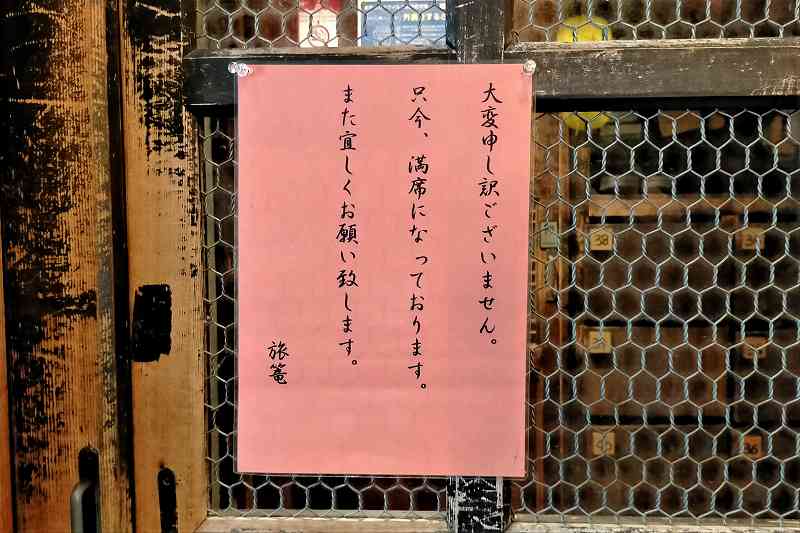 大変申し訳ございません。
只今、満席になっております。
また宜しくお願い致します。
旅篭